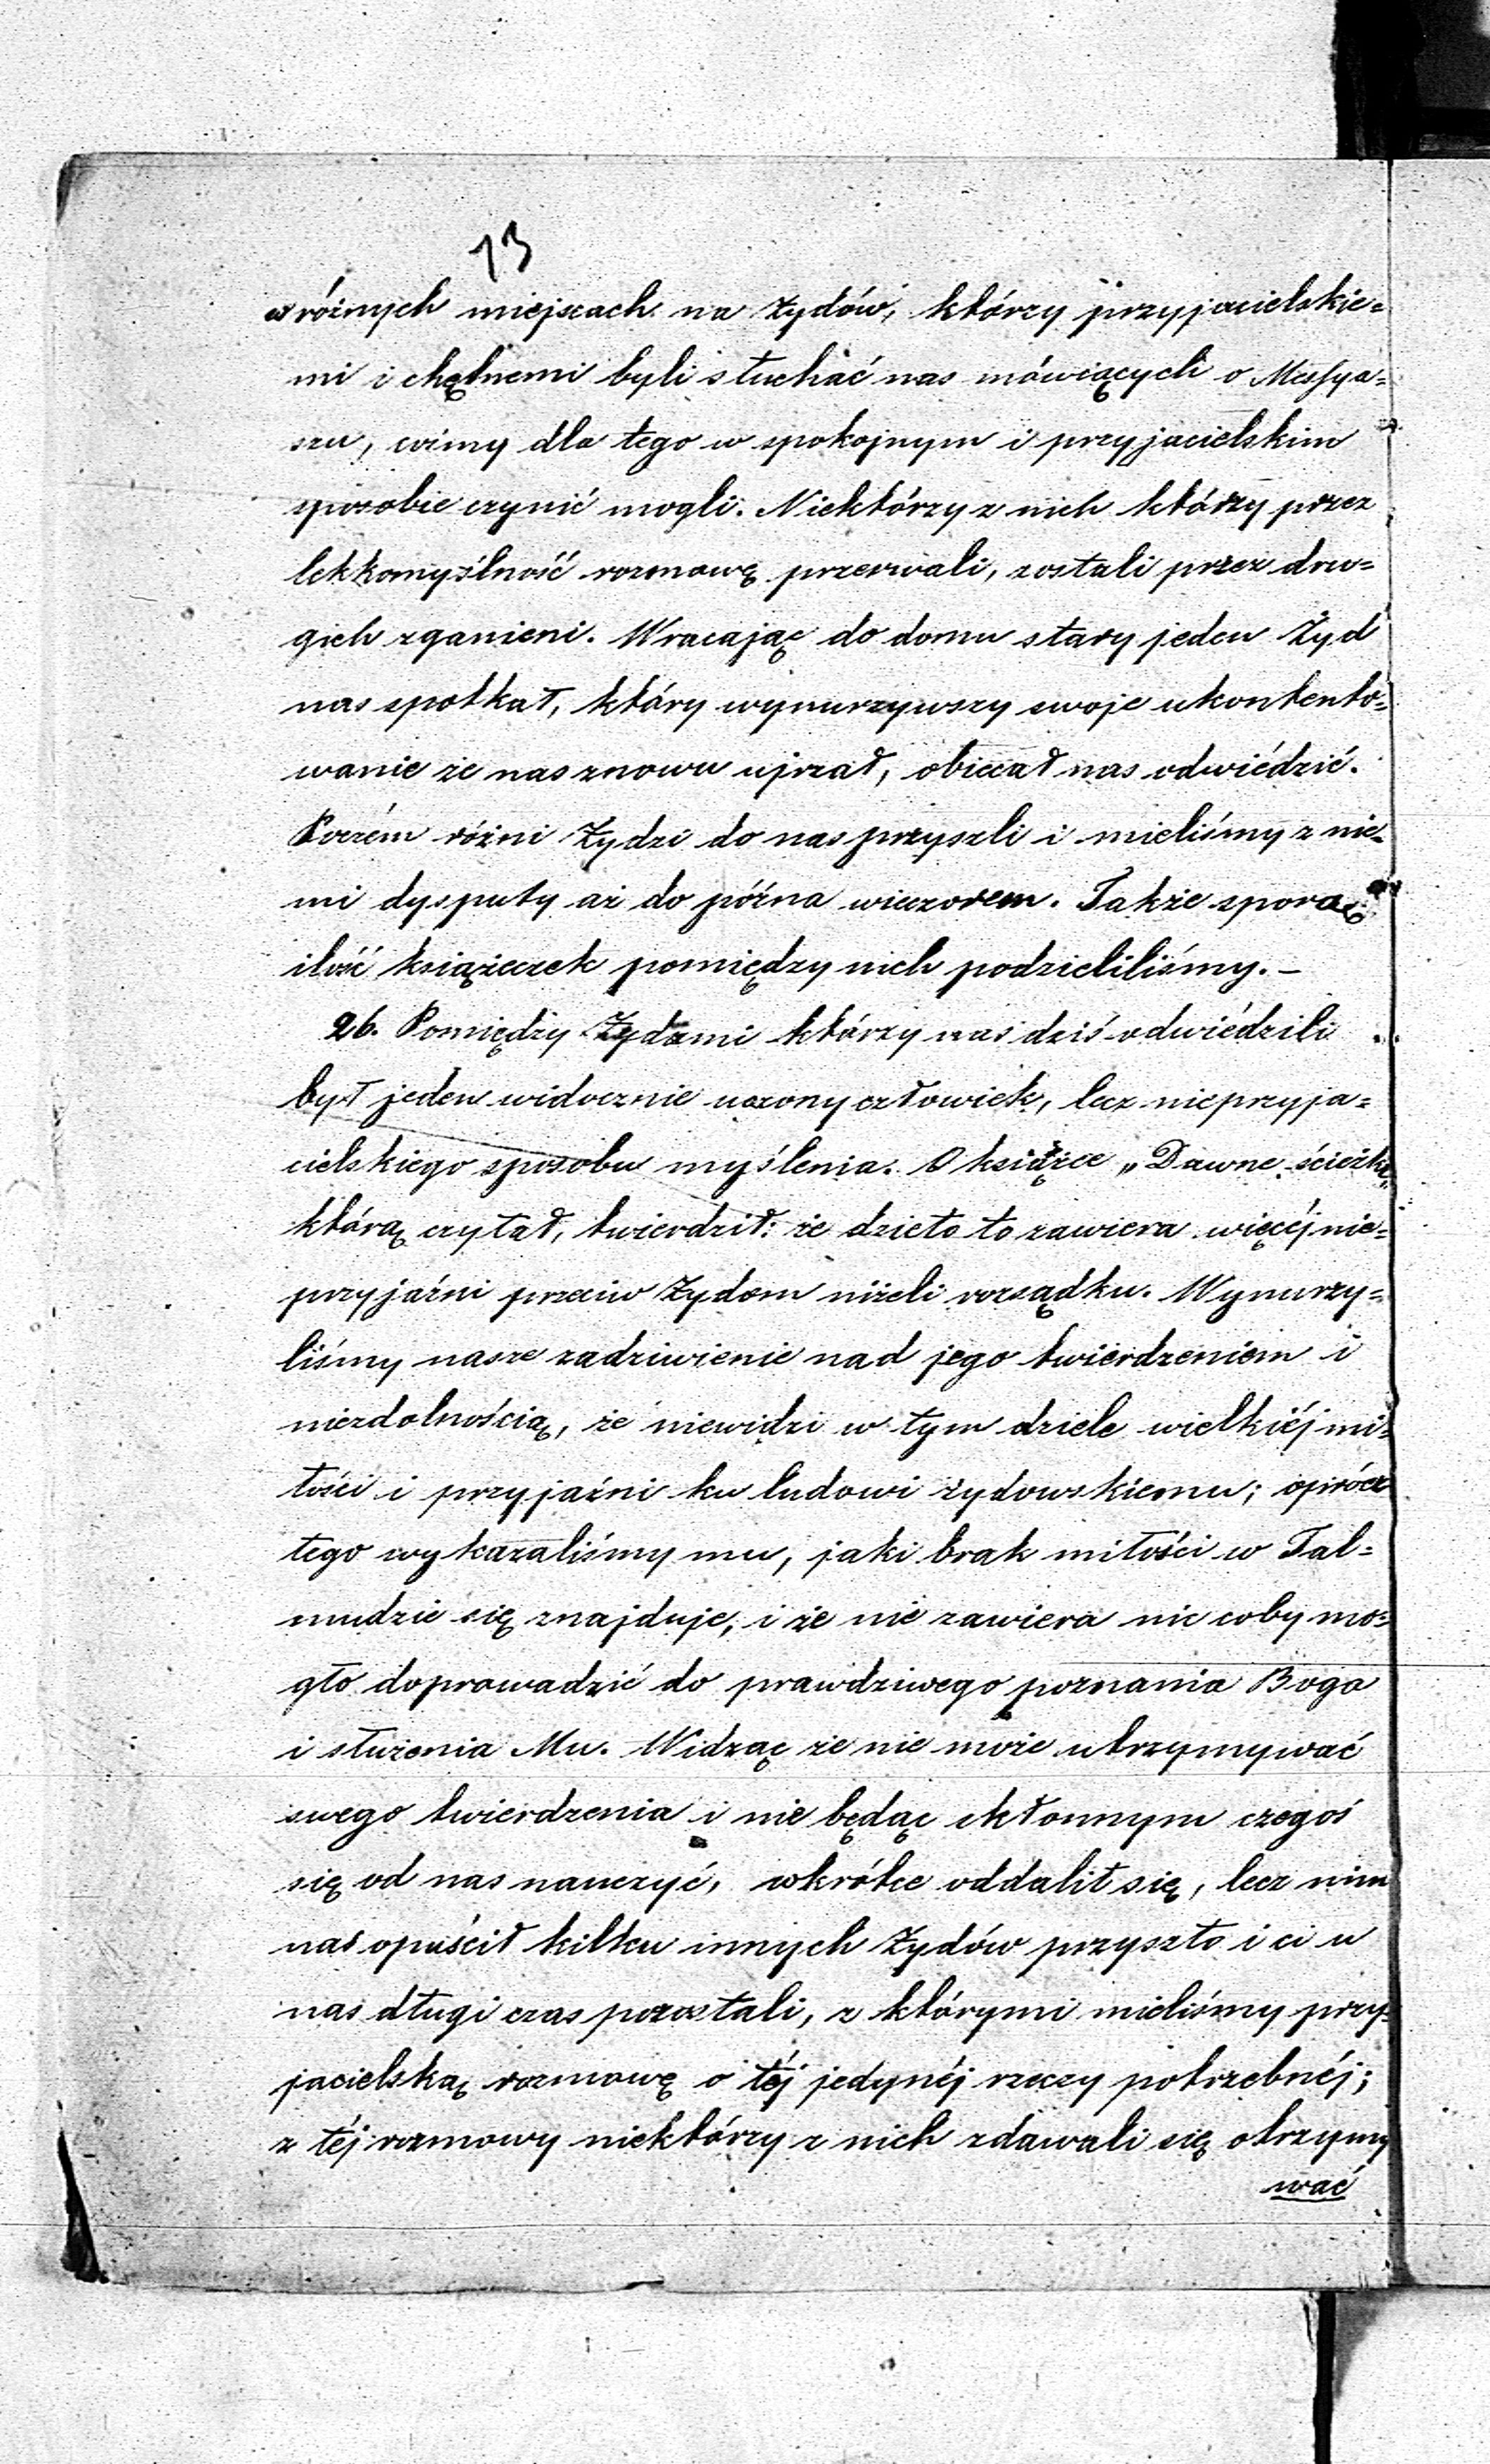 13
w różnych miejscach na Żydów, którzy przyjacielskie=
mi i chętnemi byli słuchać nas mówiących o Messya=
szu, cośmy dla tego w spokojnym i przyjacielskim
sposobie czynić mogli. Niektórzy z nich którzy przez
lekkomyślność rozmowę przerwali, zostali przez dru=
gich zganieni. Wracając do domu stary jeden Żyd
nas spotkał, który wynurzywszy swoje ukontento=
wanie że nas znowu ujrzał, obiecał nas odwiédzić.
Poczém różni Żydzi do nas przyszli i mieliśmy z nie=
mi dysputy aż do późna wieczorem. Także sporą
ilość książeczek pomiędzy nich podzieliliśmy. –
26. Pomiędzy Żydami którzy nas dziś odwiédzili
był jeden widocznie uczony człowiek, lecz nieprzyja=
cielskiego sposobu myślenia. O książce „Dawne ścieżki„
którą czytał, twierdził: że dzieło to zawiera więcéj nie=
przyjaźni przeciw Żydom niżeli rozsądku. Wynurzy=
liśmy nasze zadziwienie nad jego twierdzeniem i
niezdolnością, że niewidzi w tym dziele wielkiéj mi=
łości i przyjaźni ku ludowi żydowskiemu; oprócz
tego wykazaliśmy mu, jaki brak miłości w Tal=
mudzie się znajduje, i że nie zawiera nic coby mo=
gło doprowadzić do prawdziwego poznania Boga
i służenia Mu. Widząc że nie może utrzymywać
swego twierdzenia i nie będąc skłonnym czegoś
się od nas nauczyć, wkrótce oddalił się, lecz nim
nas opuścił kilku innych Żydów przyszło i ci u
nas długi czas pozostali, z którymi mieliśmy przy=
jacielską rozmowę o téj jedynéj rzeczy potrzebnéj;
z téj rozmowy niektórzy z nich zdawali się otrzymy
wać